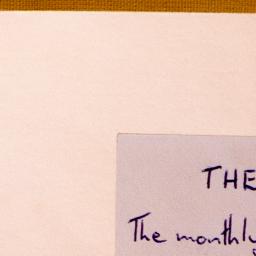 THE
The monthly